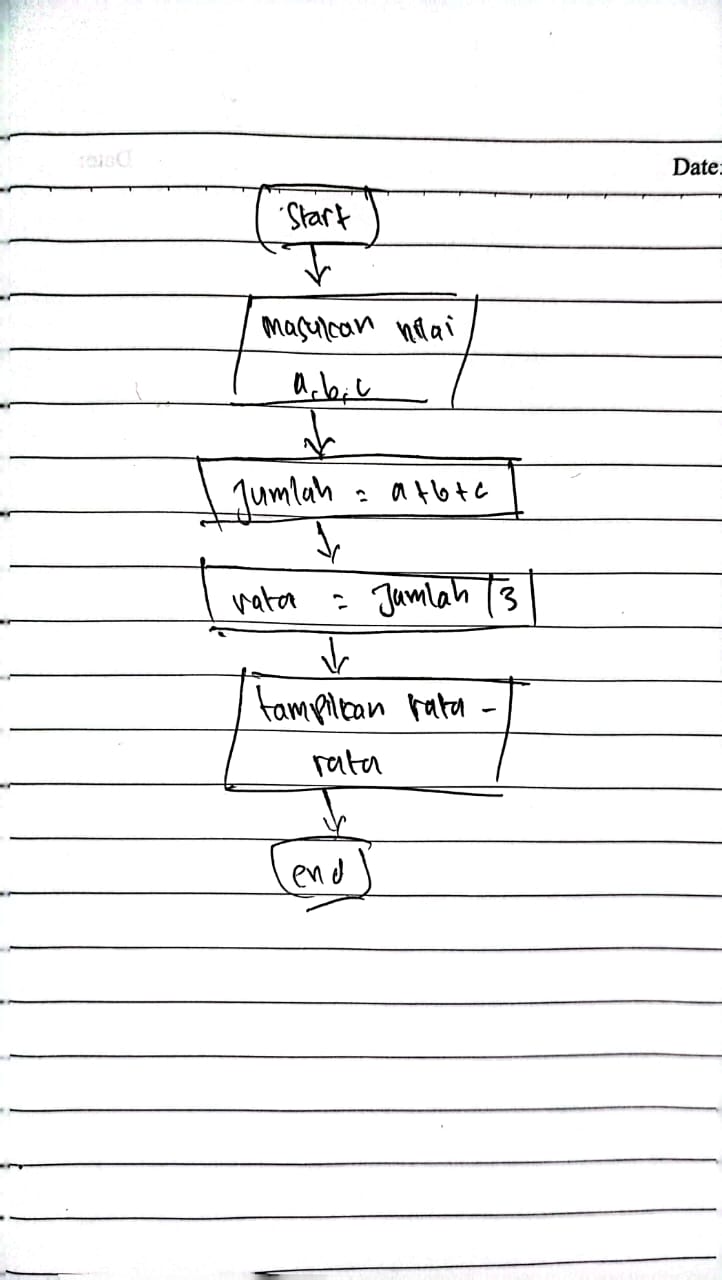 Date:
Start
masukan nilai
a, b, c
Jumlah = a+b+c
rata = Jumlah / 3
tampilkan rata -
rata
end